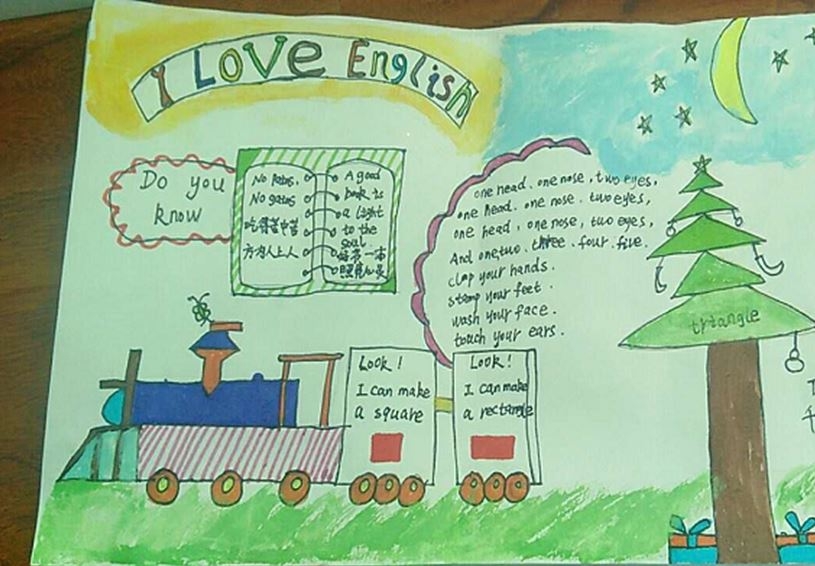 I Love English
Do you
know
No pains,
No gains
吃得苦中苦
方为人上人
A good
book is
a light
to the
soul.
好书一本
照亮心灵
one head. one nose, two eyes,
one head. one nose. two eyes,
one head, one nose, two eyes,
And one, two. three. four. five.
clap your hands.
stamp your feet.
wash your face.
touch your ears.
triangle
Look!
I can make
a square
Look!
I can make
a rectangle